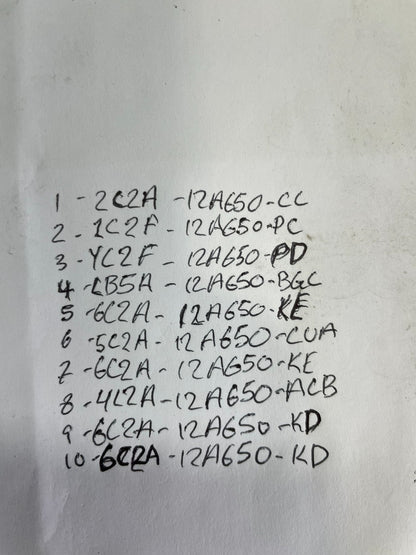 1 - 2C2A - 12A650-CC
2 - 1C2F - 12A650-PC
3 - YC2F - 12A650-PD
4 - LB5A - 12A650-BGC
5 - 6C2A - 12A650-KE
6 - 5C2A - 12A650-CUA
7 - 6C2A - 12A650-KE
8 - 4L2A - 12A650-ACB
9 - 6C2A - 12A650-KD
10 - 6C2A - 12A650-KD